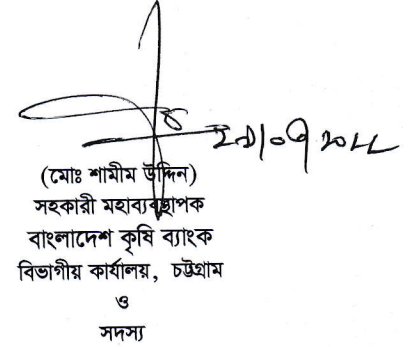 (মোঃ শামীম উদ্দিন)
সহকারী মহাব্যবস্থাপক
বাংলাদেশ কৃষি ব্যাংক
বিভাগীয় কার্যালয়, চট্টগ্রাম
ও
সদস্য